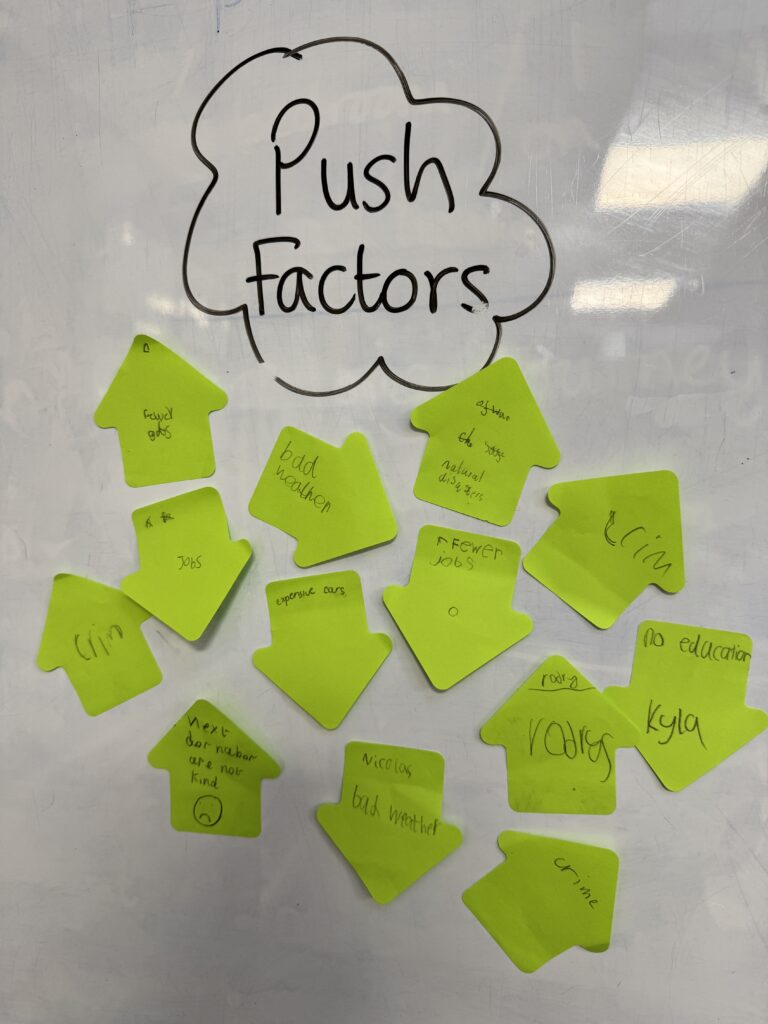 Push
Factors
Fewer
jobs
bad
weather
natural
disasters
Jobs
↑ Fewer
jobs
Crim
Crim
expensive cars
no education
Kyla
rodry
rodrys
Next
dor nabor
are not
kind
Nicolas
bad weather
crime